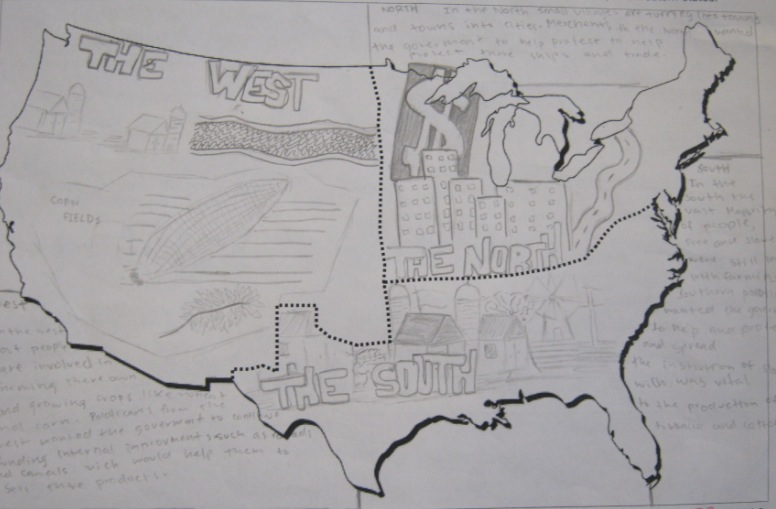 NORTH In the North small villages are turning into towns
and towns into cities. Merchants in the North wanted
the government to help protect to help
protect there ships and trade.
THE WEST
CORN
FIELDS
THE NORTH
THE SOUTH
South
In the
South the
vast Majority
of people,
free and
were still
with farming
Southern
wanted the
to help
and spread
the institution of
wich was vital
to the production of
tobacco and
West
In the
most people
are involved in
farming there own
and growing crops like
and corn. from the
west wanted the goverment to continue
funding internal improvments such as roads
and canals wich would help them to
sell these products.